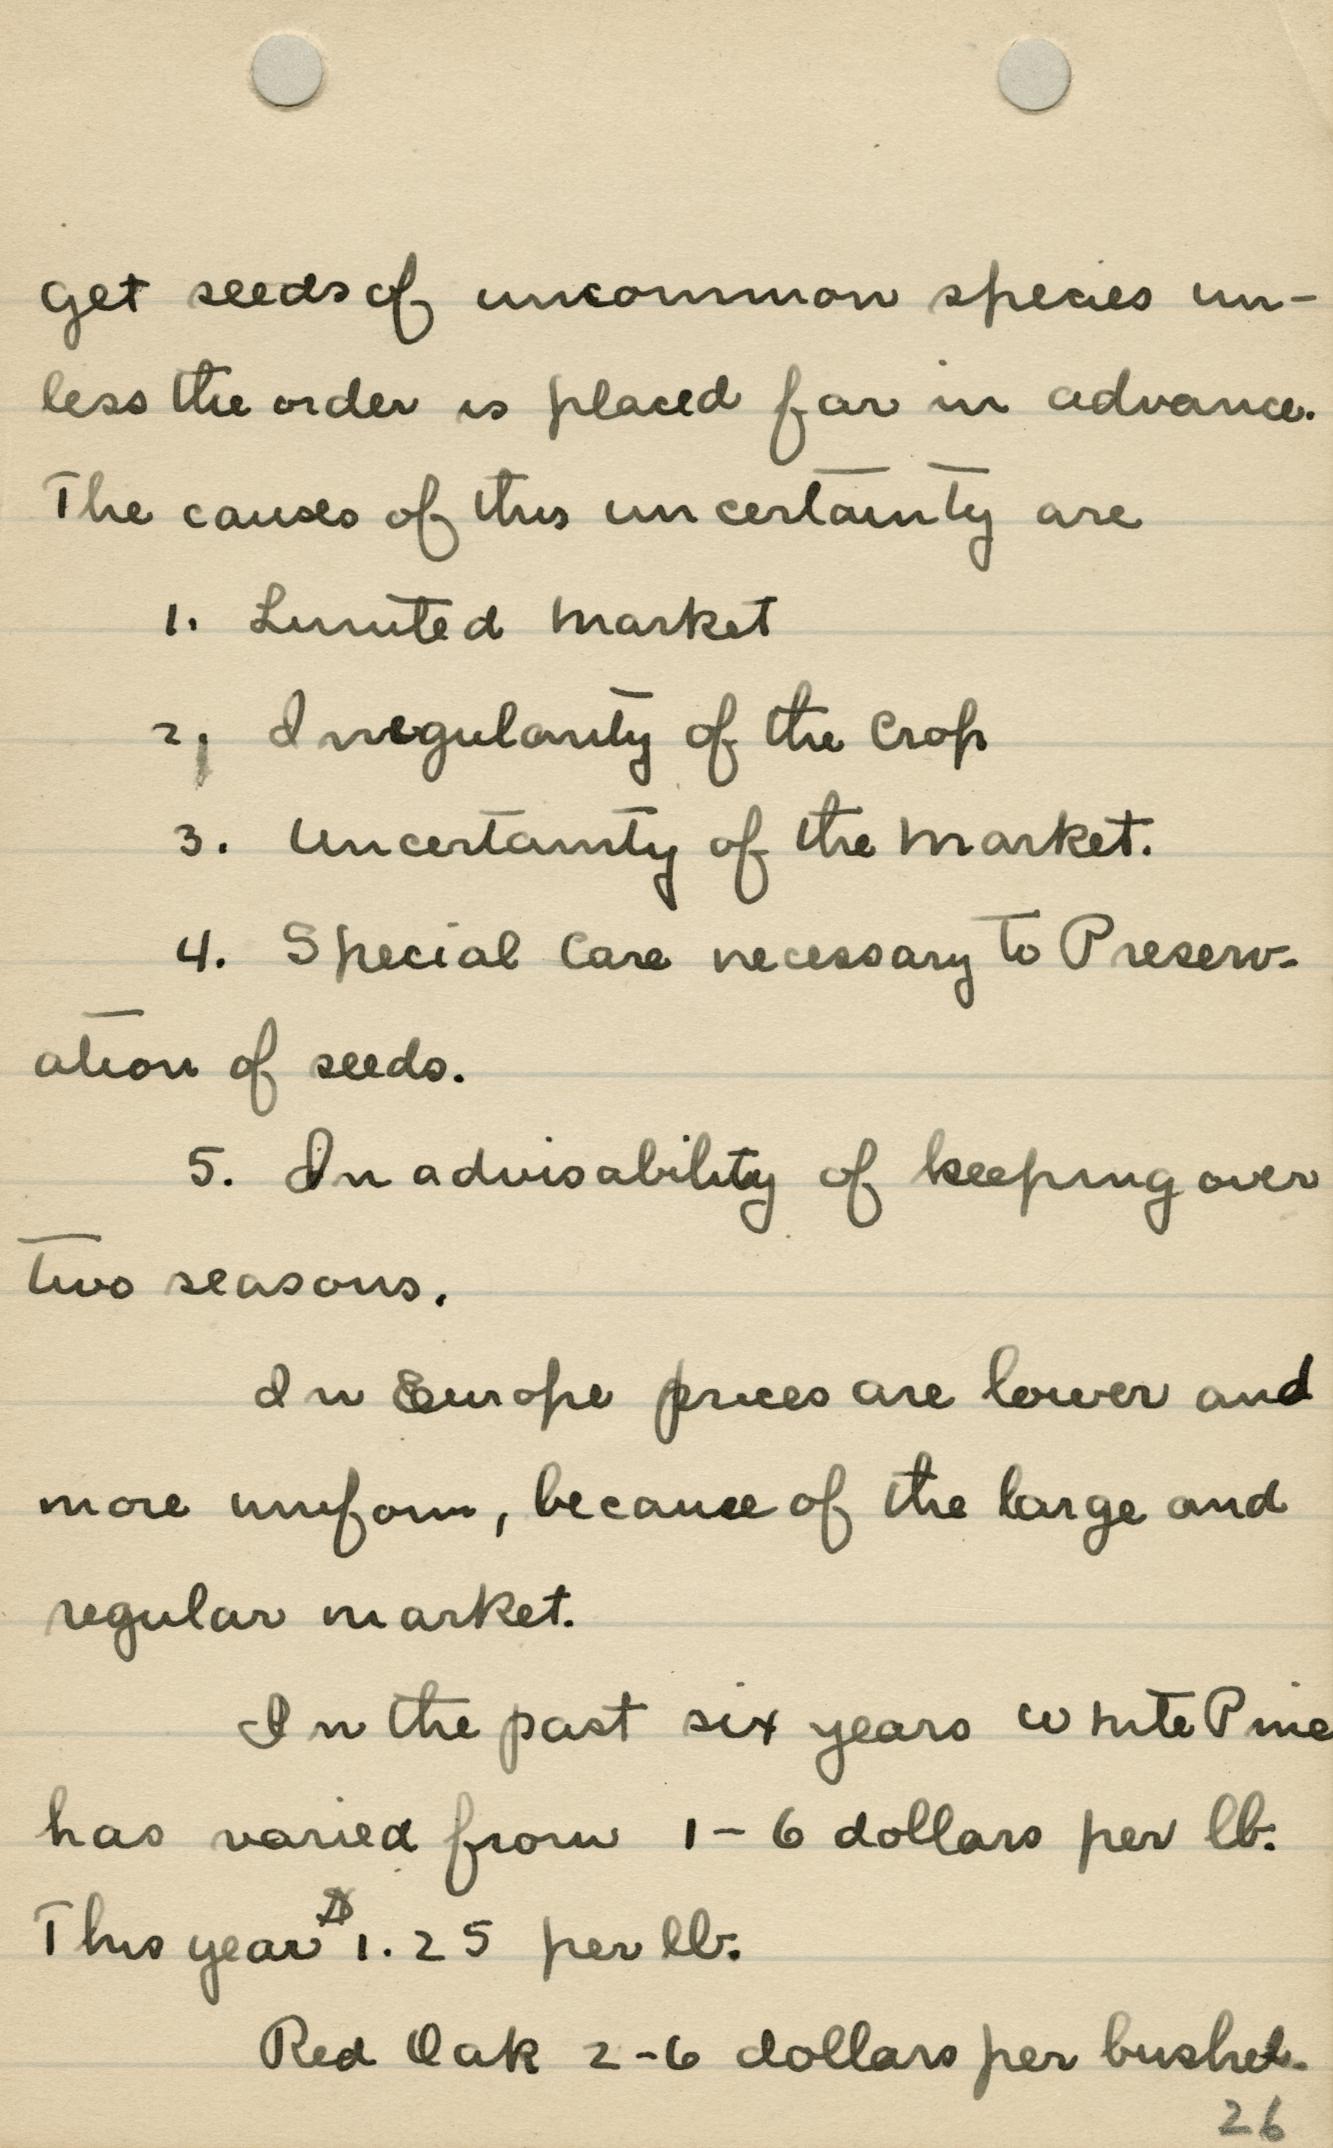 get seeds of uncommon species un-
less the order is placed far in advance.
The causes of this uncertainty are
1. Limited Market
2, Irregularity of the Crop
3. Uncertainty of the Market.
4. Special Care necessary to Preserv-
ation of seeds.
5. Inadvisability of keeping over
two seasons.
In Europe prices are lower and
more uniform, because of the large and
regular market.
In the past six years White Pine
has varied from 1-6 dollars per lb.
This year $1.25 per lb.
Red Oak 2-6 dollars per bushel.
26